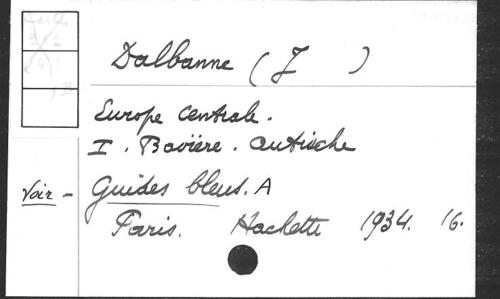 Dalbanne (J )
Europe Centrale.
I. Bavière. Autriche
Voir - Guides bleus. A
Paris. Hachette 1934. 16.